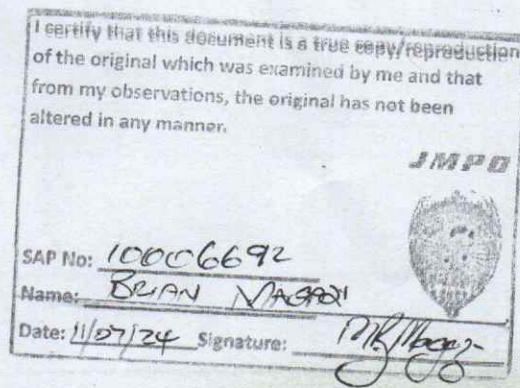 I certify that this document is a true copy/reproduction
of the original which was examined by me and that
from my observations, the original has not been
altered in any manner.
JMPD
SAP No: 10006692
Name: BRIAN
Date: 11/07/24 Signature: